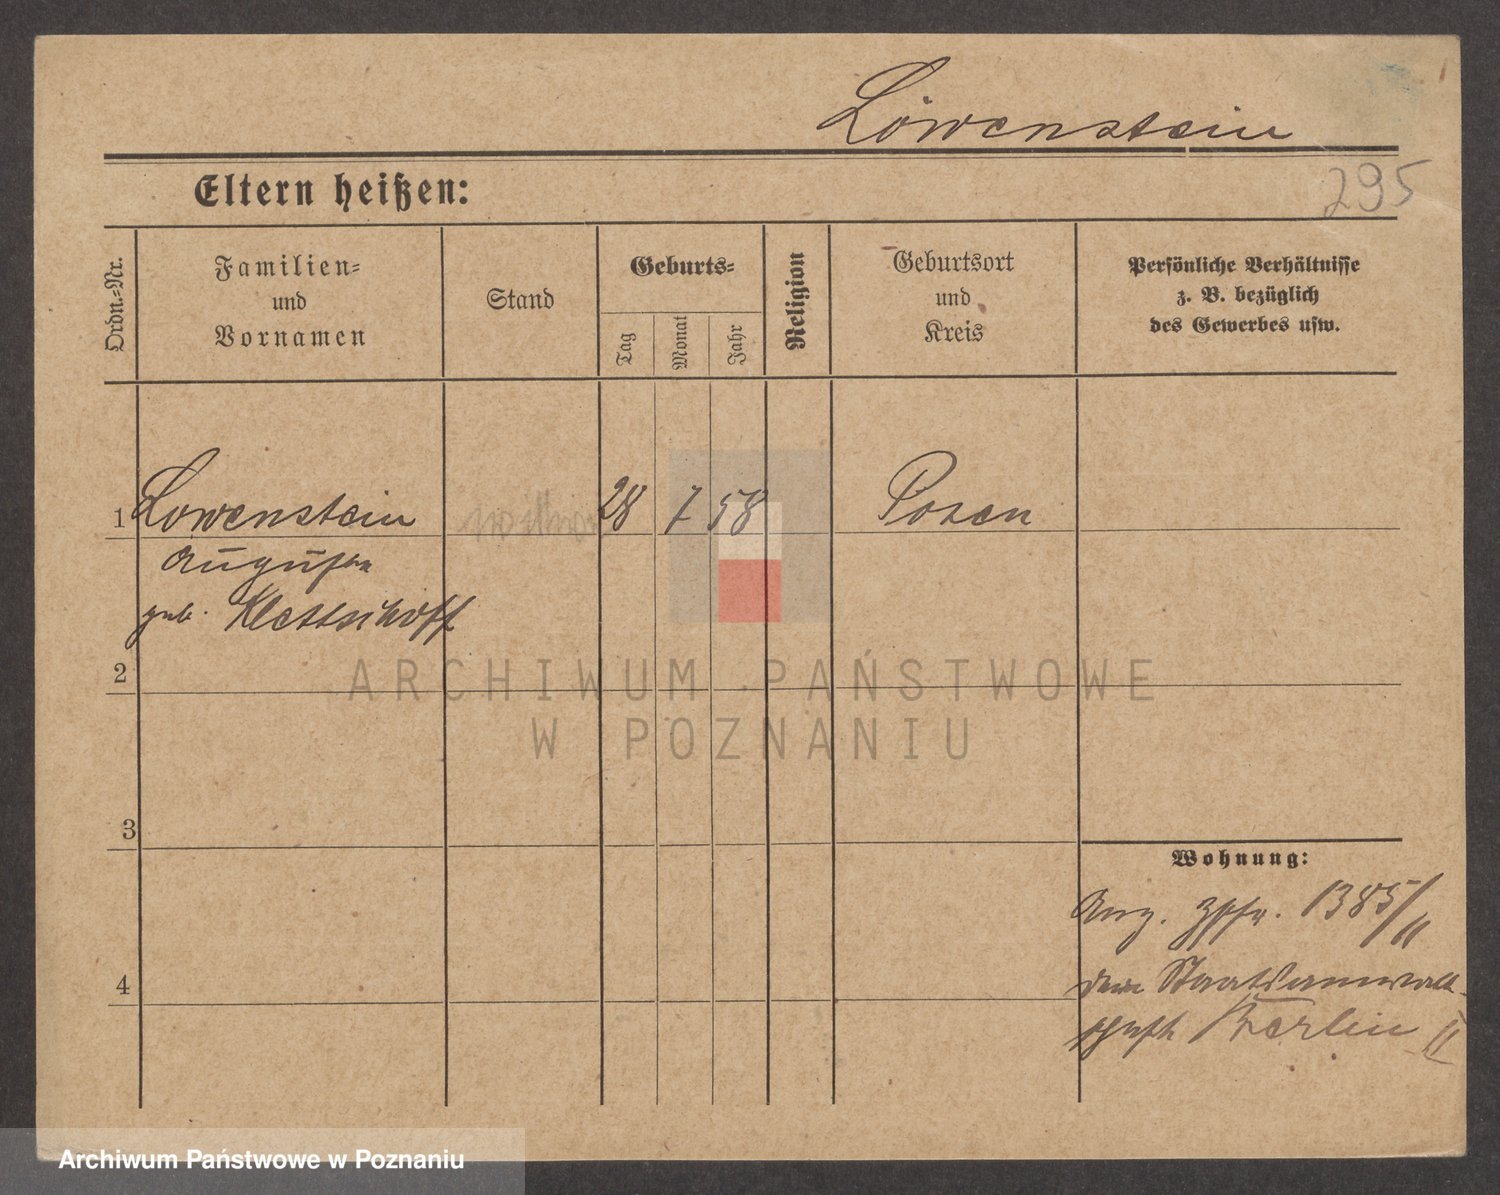 Löwenstein
295
Eltern heißen:
Ordn.-Nr.
Familien-
und
Vornamen
Stand
Geburts-
Tag
Monat
Jahr
Religion
Geburtsort
und
Kreis
Persönliche Verhältnisse
z. B. bezüglich
des Gewerbes usw.
1 Löwenstein 28 7 58 Posen
geb.
2
3
4
Wohnung:
1385/11
dem Staatsanwalt-
schaft Berlin II
ARCHIWUM PAŃSTWOWE
W POZNANIU
Archiwum Państwowe w Poznaniu